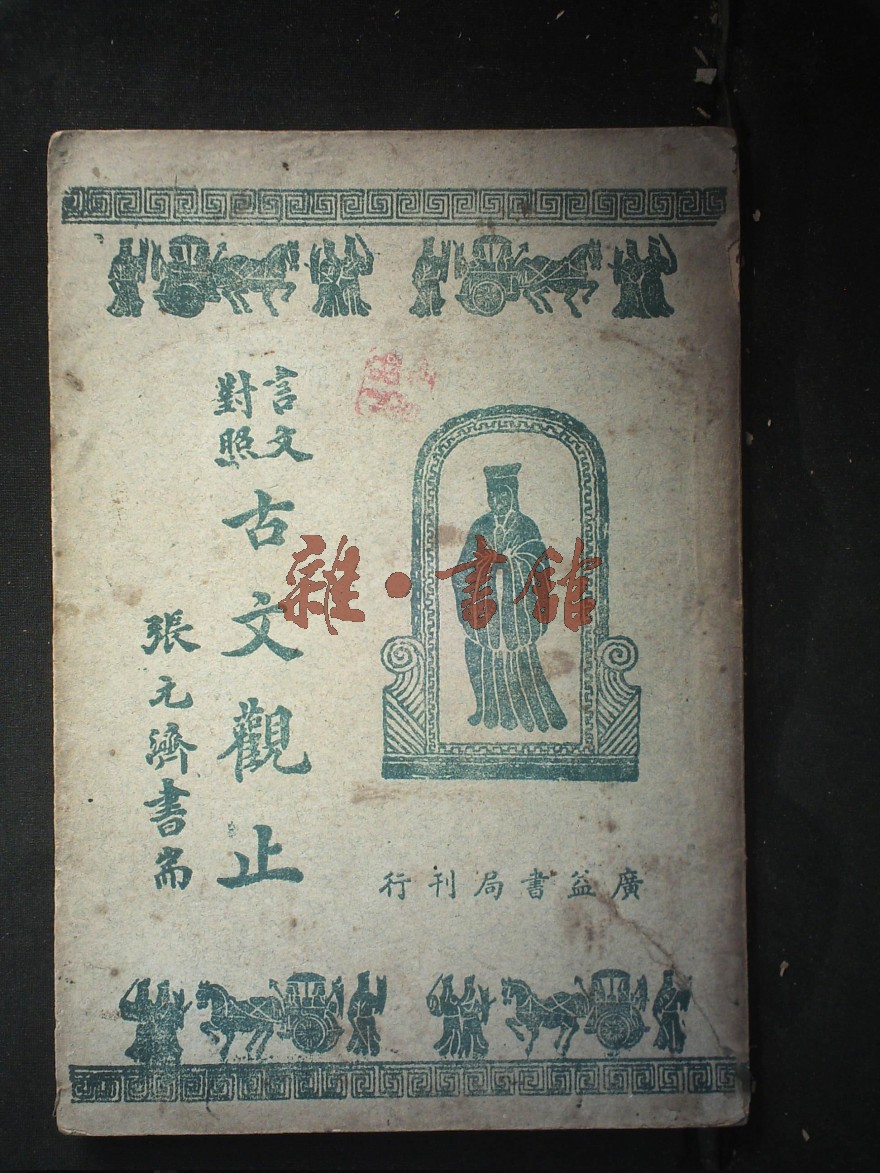 言文
對照
古文觀止
張元濟書耑
廣益書局刊行
雜·書館